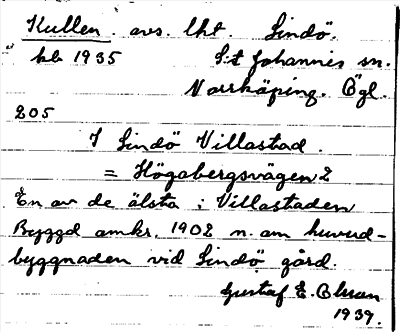 Kullen. avs. lht. Lindö.
kb 1935 S:t Johannis sn.
Norrköping. Ögl.
205
I Lindö Villastad.
= Högabergsvägen 2
En av de älsta i Villastaden
Byggd omkr. 1902 n. om huvud-
byggnaden vid Lindö gård.
Gustaf E. Olsson
1939.